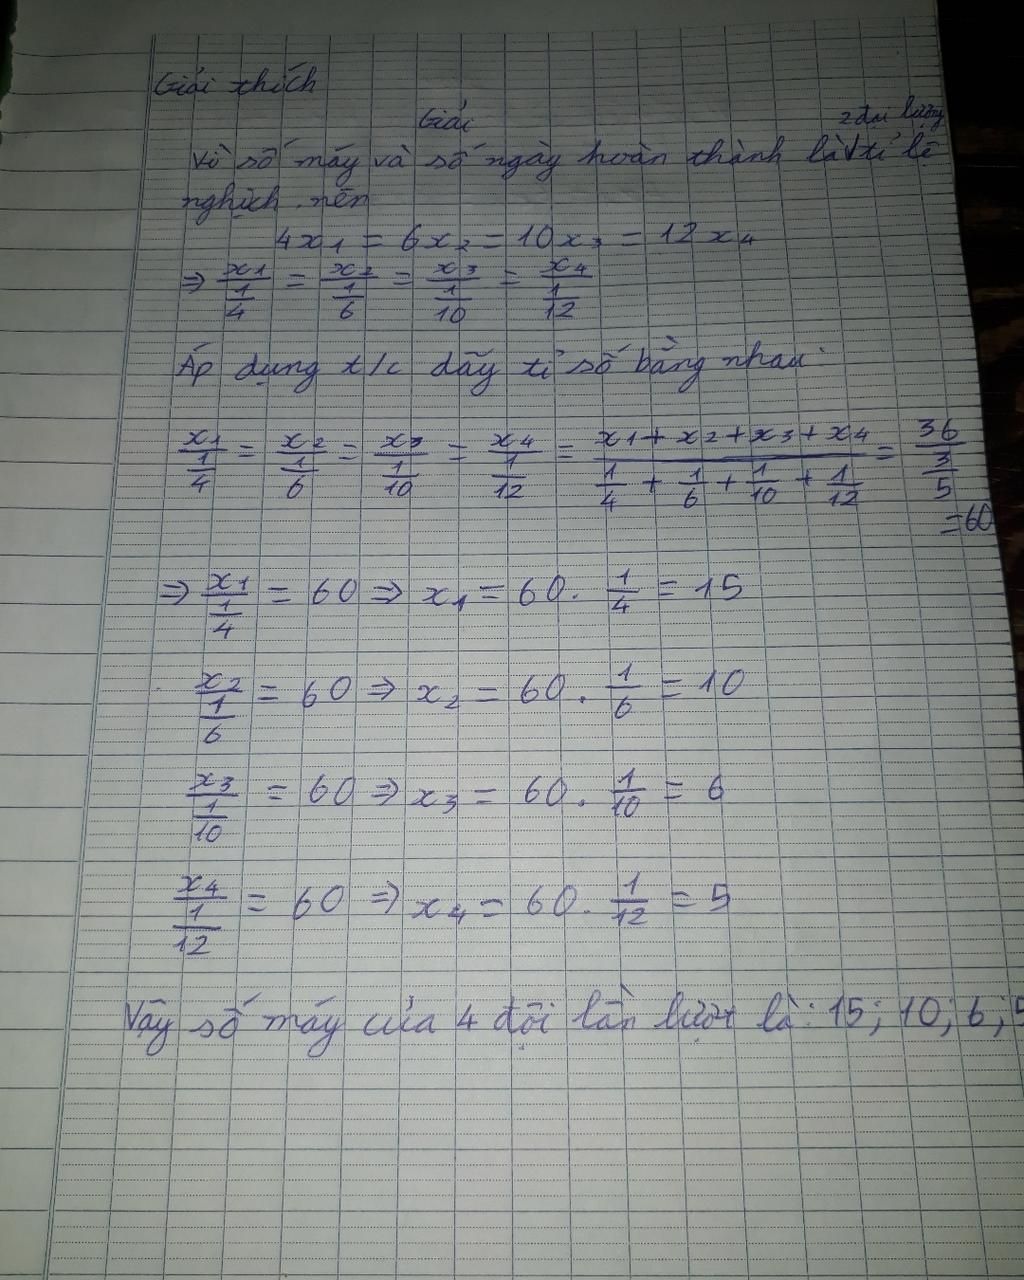 Giải thích
Giải
2 đại lượng
Vì số máy và số ngày hoàn thành là tỉ lệ
nghịch nên
4x1 = 6x2 = 10x3 = 12x4
⇒ x1/(1/4) = x2/(1/6) = x3/(1/10) = x4/(1/12)
Áp dụng t/c dãy tỉ số bằng nhau:
x1/(1/4) = x2/(1/6) = x3/(1/10) = x4/(1/12) = (x1 + x2 + x3 + x4)/(1/4 + 1/6 + 1/10 + 1/12) = 36/(3/5)
= 60
⇒ x1/(1/4) = 60 ⇒ x1 = 60 . 1/4 = 15
x2/(1/6) = 60 ⇒ x2 = 60 . 1/6 = 10
x3/(1/10) = 60 ⇒ x3 = 60 . 1/10 = 6
x4/(1/12) = 60 ⇒ x4 = 60 . 1/12 = 5
Vậy số máy của 4 đội lần lượt là: 15; 10; 6; 5